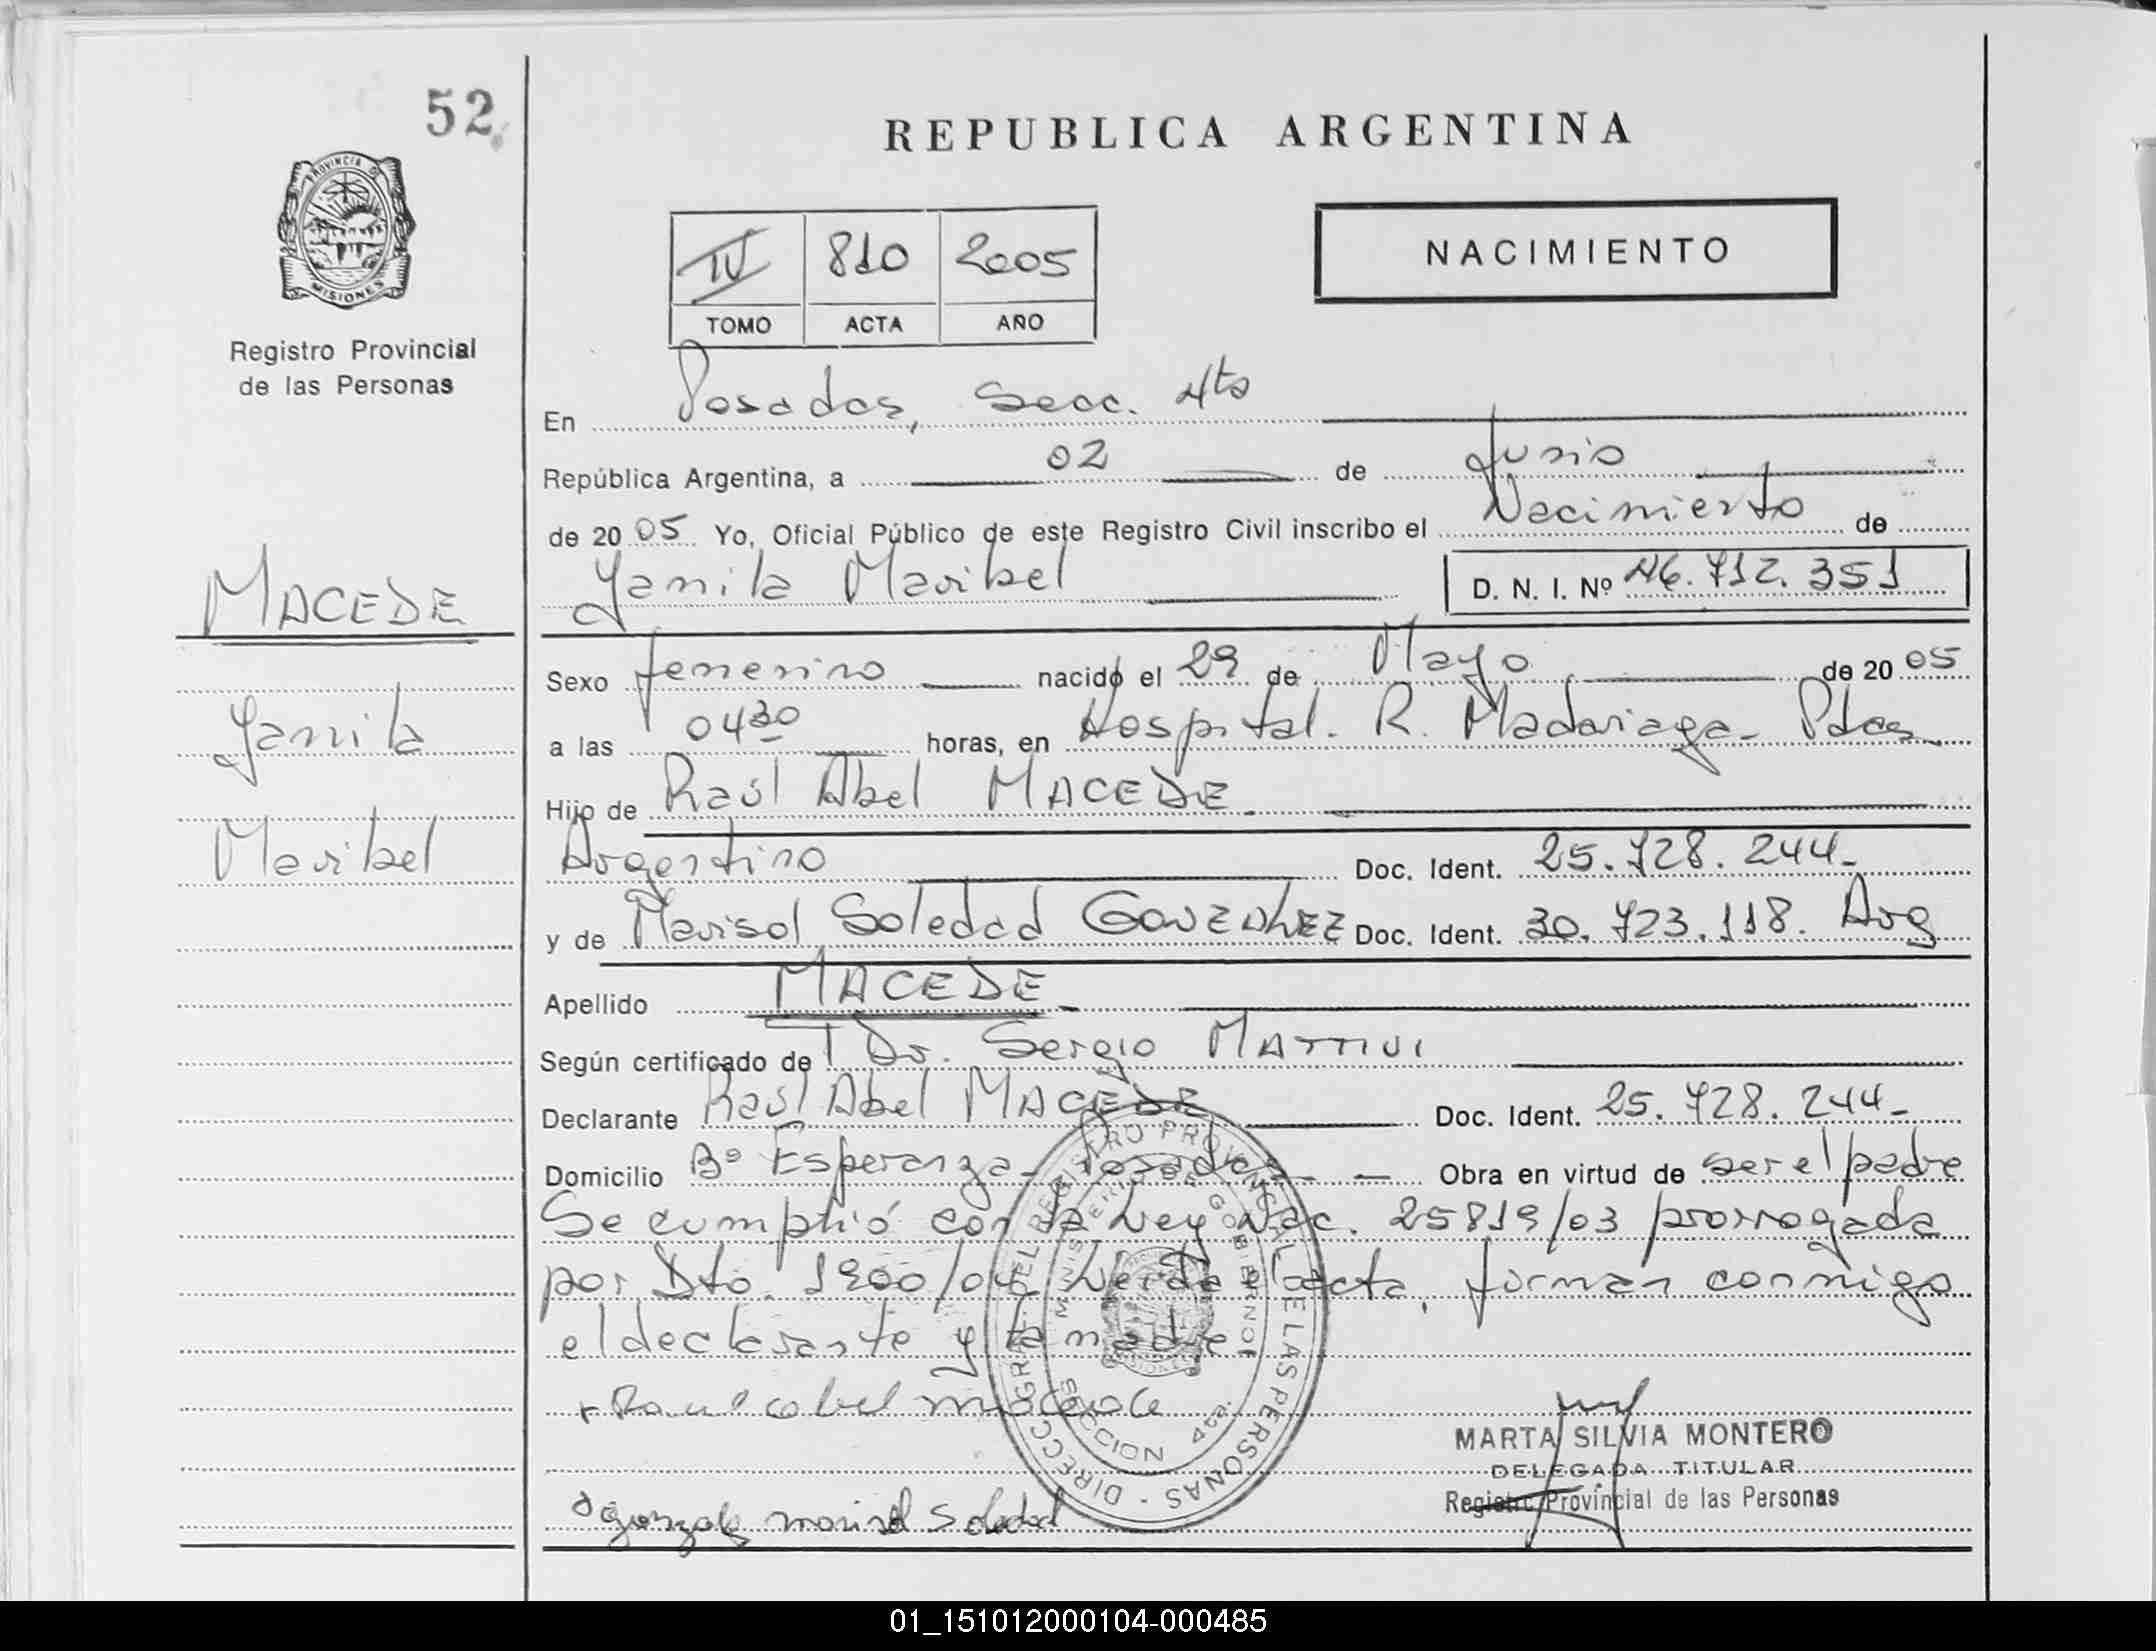 52
PROVINCIA DE
MISIONES
Registro Provincial
de las Personas
MACEDE
Yamila
Maribel
REPUBLICA ARGENTINA
IV 810 2005
TOMO ACTA AÑO
NACIMIENTO
En Posadas, Secc. 4ta
República Argentina, a 02 de Junio
de 20 05 Yo, Oficial Público de este Registro Civil inscribo el Nacimiento de
Yamila Maribel D. N. I. Nº 46.712.351
Sexo femenino nacido el 29 de Mayo de 20 05
a las 0430 horas, en Hospital. R. Madariaga - Pdas
Hijo de Raúl Abel MACEDE
Argentino Doc. Ident. 25.728.244-
y de Marisol Soledad GONZALEZ Doc. Ident. 30.723.118. Arg
Apellido MACEDE
Según certificado de Dr. Sergio MATTIVI
Declarante Raúl Abel MACEDE Doc. Ident. 25.728.244-
Domicilio Bº Esperanza - Posadas - Obra en virtud de ser el padre
Se cumplió con la Ley Nac. 25819/03 prorrogada
por Dto. 1900/04 Leida l'acta, firman conmigo
el declarante y la madre
Raul abel macede
gonzalez marisol Soledad
DIRECC. GRAL. DEL REGISTRO PROVINCIAL DE LAS PERSONAS
MINISTERIO DE GOBIERNO
SECCION 4ta.
MARTA SILVIA MONTERO
DELEGADA TITULAR
Registro Provincial de las Personas
01_151012000104-000485